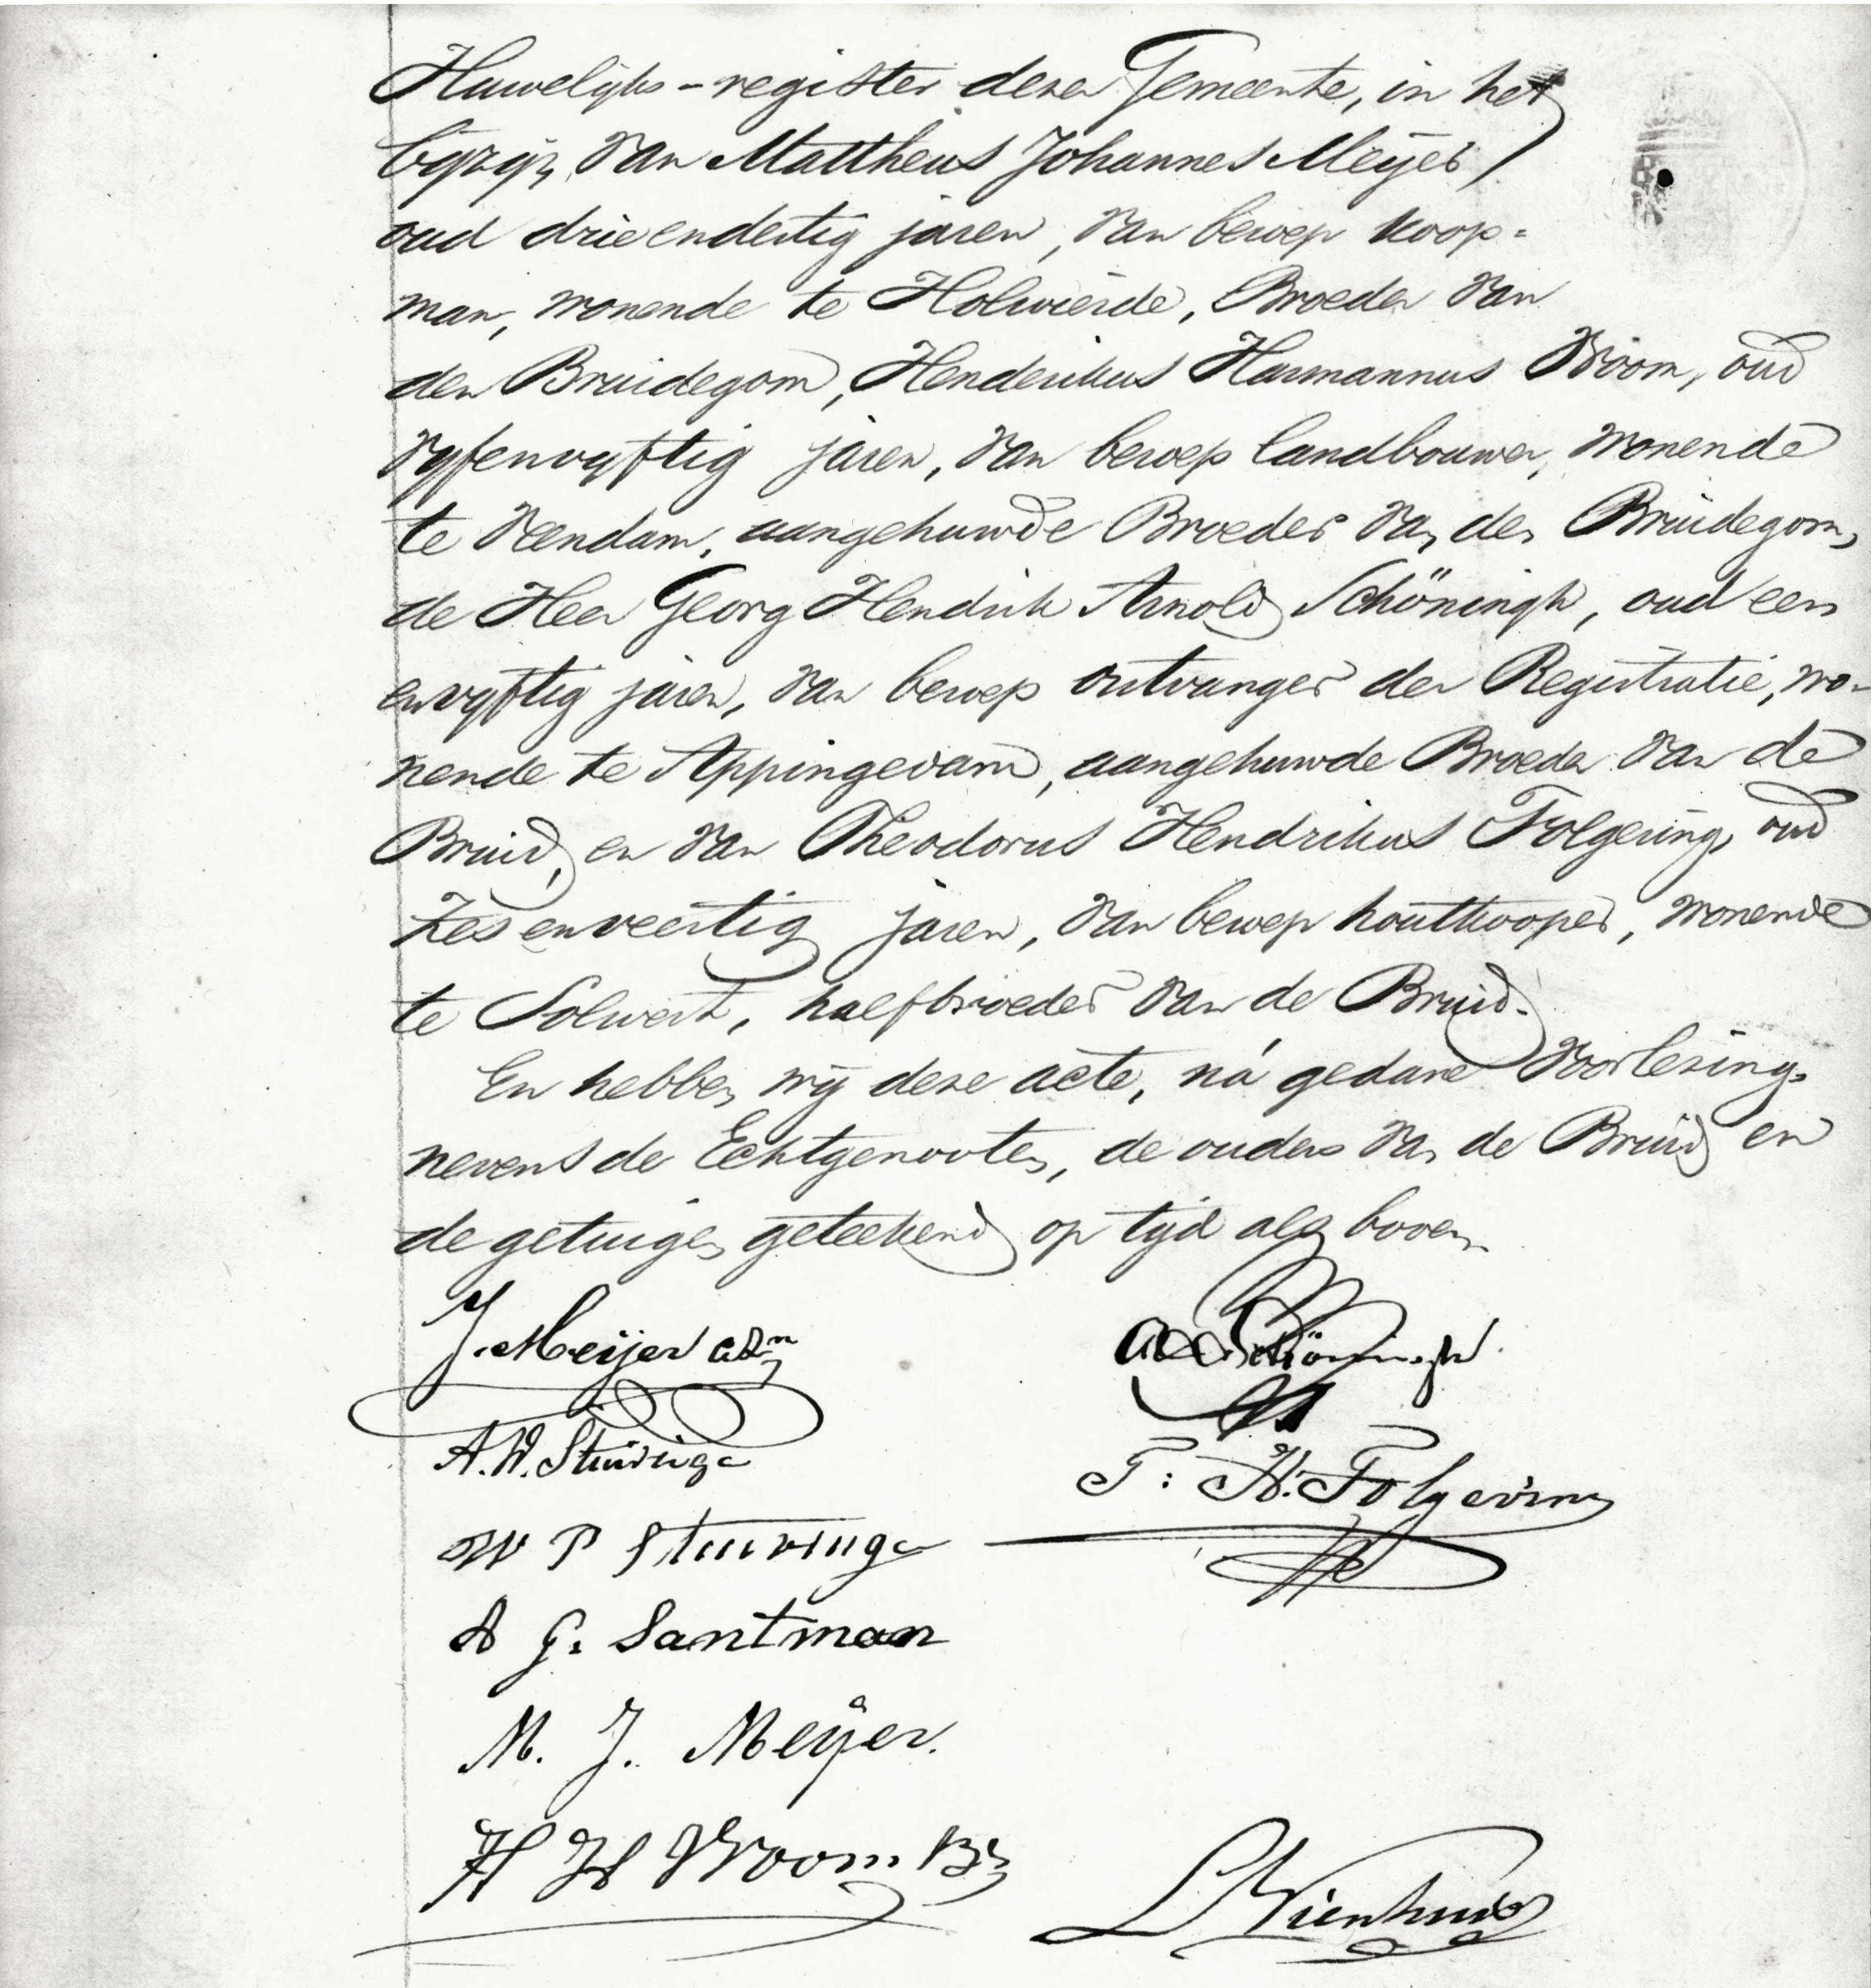 Huwelijks-register dezer Gemeente, in het
bijzijn van Mattheus Johannes Meijer,
oud drieendertig jaren, van beroep koop-
man, wonende te Holwierde, Broeder van
den Bruidegom, Henderikus Harmannus Vroom, oud
vijfenvijftig jaren, van beroep landbouwer, wonende
te Veendam, aangehuwde Broeder van den Bruidegom,
de Heer Georg Hendrik Arnold Schöningh, oud een
envijftig jaren, van beroep ontvanger der Registratie, wo-
nende te Appingedam, aangehuwde Broeder van de
Bruid, en van Theodorus Hendrikus Folgering, oud
zesenveertig jaren, van beroep houtkooper, wonende
te Solwert, halfbroeder van de Bruid.
En hebben wij deze acte, ná gedane voorlezing,
nevens de Echtgenooten, de ouders van de Bruid en
de getuigen geteekend op tijd als boven.
J. Meijer Azn
Schöningh.
A. W. Stuivinga
T: H. Folgering
W P Stuivinga
A G. Santman
M. J. Meijer.
H H Vroom Bz
L Wienhuis